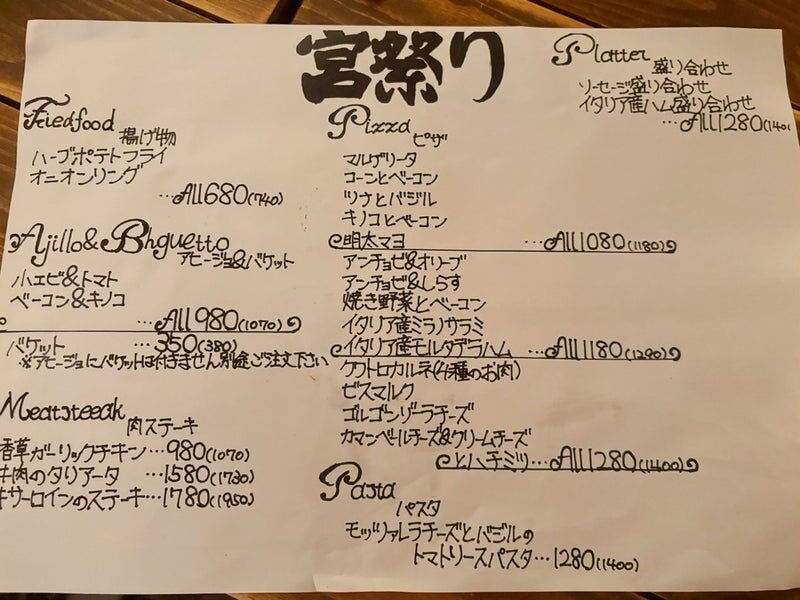 宮祭り
Friedfood 揚げ物
ハーブポテトフライ
オニオンリング
…All680(740)
Ajillo&Bhguetto
アヒージョ&バケット
小エビ&トマト
ベーコン&キノコ
…All980(1070)
バケット …350(380)
※アヒージョにバケットは付きません別途ご注文下さい
Meatsteeak
肉ステーキ
香草ガーリックチキン…980(1070)
牛肉のタリアータ …1580(1730)
牛サーロインのステーキ…1780(1950)
Pizza
ピザ
マルゲリータ
コーンとベーコン
ツナとバジル
キノコとベーコン
明太マヨ …All1080(1180)
アンチョビ&オリーブ
アンチョビ&しらす
焼き野菜とベーコン
イタリア産ミラノサラミ
イタリア産モルタデラハム …All1180(1290)
クワトロカルネ(4種のお肉)
ビスマルク
ゴルゴンゾーラチーズ
カマンベールチーズ&クリームチーズ
とハチミツ…All1280(1400)
Pasta
パスタ
モッツァレラチーズとバジルの
トマトソースパスタ…1280(1400)
Platter
盛り合わせ
ソーセージ盛り合わせ
イタリア産ハム盛り合わせ
…All1280(140